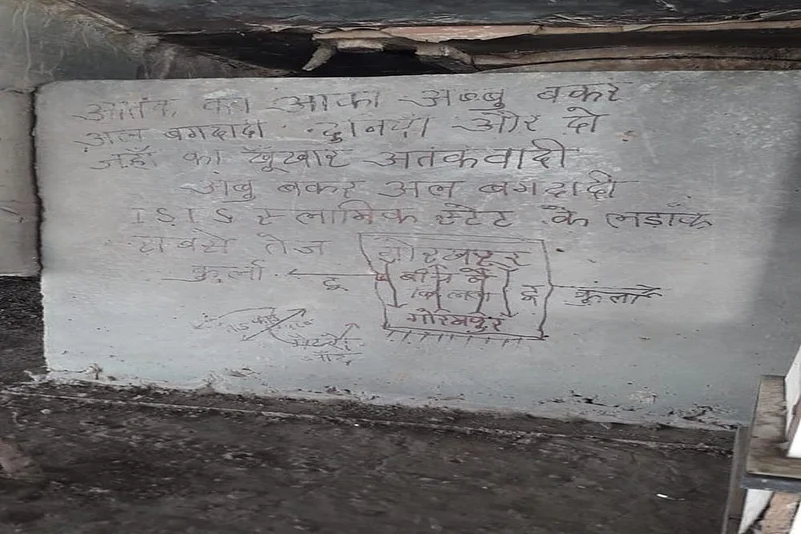 आतंक का आका अब्बु बकर
अल बगदादी दुनिया और दो
जहाँ का खूंखार अतंकवादी
अबु बकर अल बगदादी
ISIS इस्लामिक स्टेट के लड़ाके
सबसे तेज
गोरखपुर
कुर्ला
टू
बीच में
टू
कुर्ला
गोरखपुर